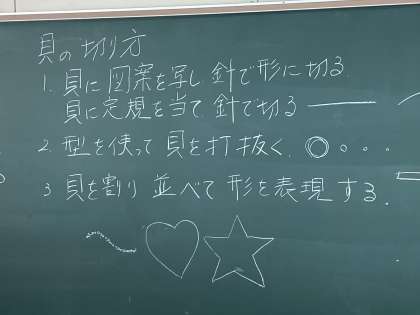 貝の切り方
1. 貝に図案を写し針で形に切る
貝に定規を当て針で切る
2. 型を使って貝を打抜く.
3 貝を割り並べて形を表現する.